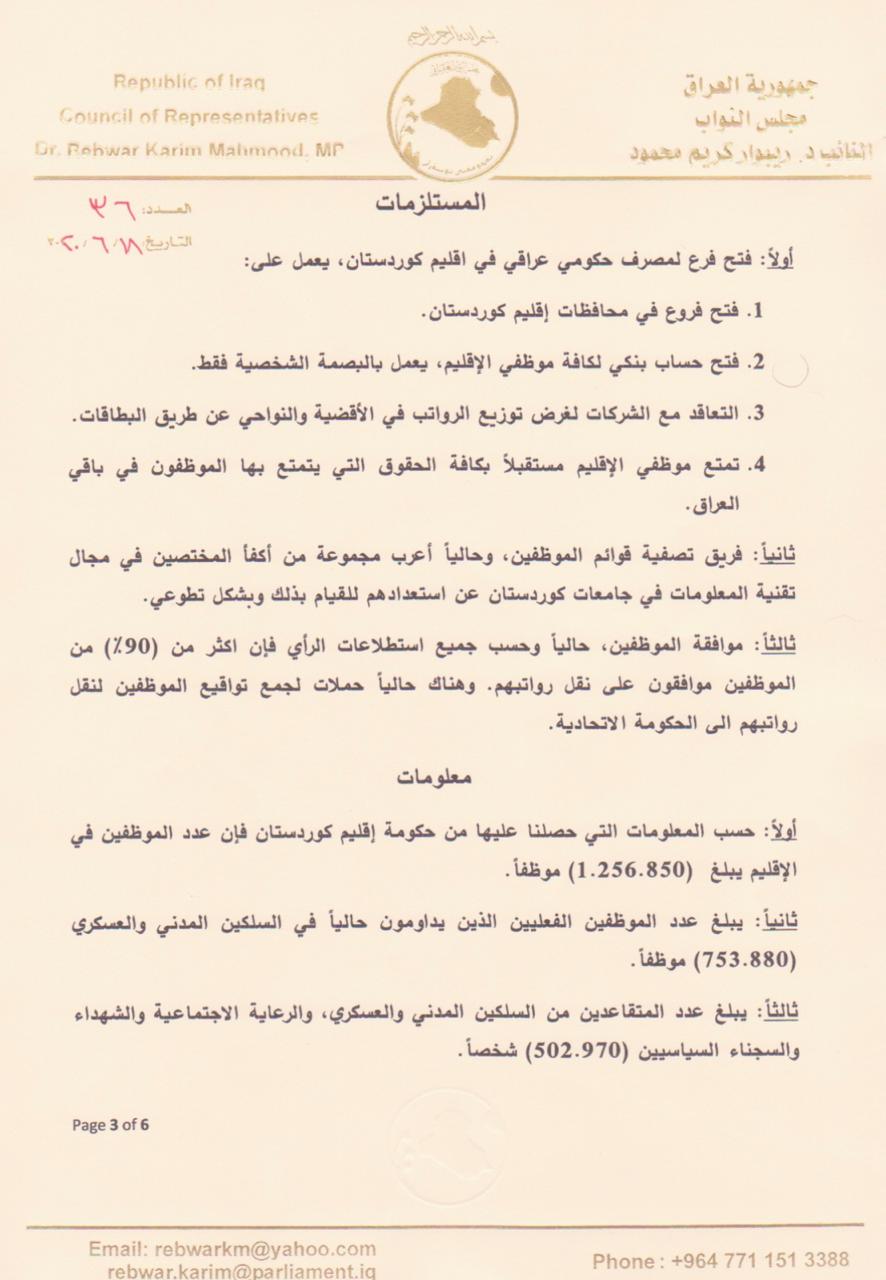 بسم الله الرحمن الرحيم
Republic of Iraq
Council of Representatives
Dr. Rebwar Karim Mahmood, MP
جمهورية العراق
مجلس النواب
النائب د. ريبوار كريم محمود
العدد: ٣٦
التاريخ:
المستلزمات
أولاً: فتح فرع لمصرف حكومي عراقي في اقليم كوردستان، يعمل على:
1. فتح فروع في محافظات إقليم كوردستان.
2. فتح حساب بنكي لكافة موظفي الإقليم، يعمل بالبصمة الشخصية فقط.
3. التعاقد مع الشركات لغرض توزيع الرواتب في الأقضية والنواحي عن طريق البطاقات.
4. تمتع موظفي الإقليم مستقبلاً بكافة الحقوق التي يتمتع بها الموظفون في باقي
العراق.
ثانياً: فريق تصفية قوائم الموظفين، وحالياً أعرب مجموعة من أكفأ المختصين في مجال
تقنية المعلومات في جامعات كوردستان عن استعدادهم للقيام بذلك وبشكل تطوعي.
ثالثاً: موافقة الموظفين، حالياً وحسب جميع استطلاعات الرأي فإن اكثر من (90٪) من
الموظفين موافقون على نقل رواتبهم. وهناك حالياً حملات لجمع تواقيع الموظفين لنقل
رواتبهم الى الحكومة الاتحادية.
معلومات
أولاً: حسب المعلومات التي حصلنا عليها من حكومة إقليم كوردستان فإن عدد الموظفين في
الإقليم يبلغ (1.256.850) موظفاً.
ثانياً: يبلغ عدد الموظفين الفعليين الذين يداومون حالياً في السلكين المدني والعسكري
(753.880) موظفاً.
ثالثاً: يبلغ عدد المتقاعدين من السلكين المدني والعسكري، والرعاية الاجتماعية والشهداء
والسجناء السياسيين (502.970) شخصاً.
Page 3 of 6
Email: rebwarkm@yahoo.com
rebwar.karim@parliament.iq
Phone : +964 771 151 3388